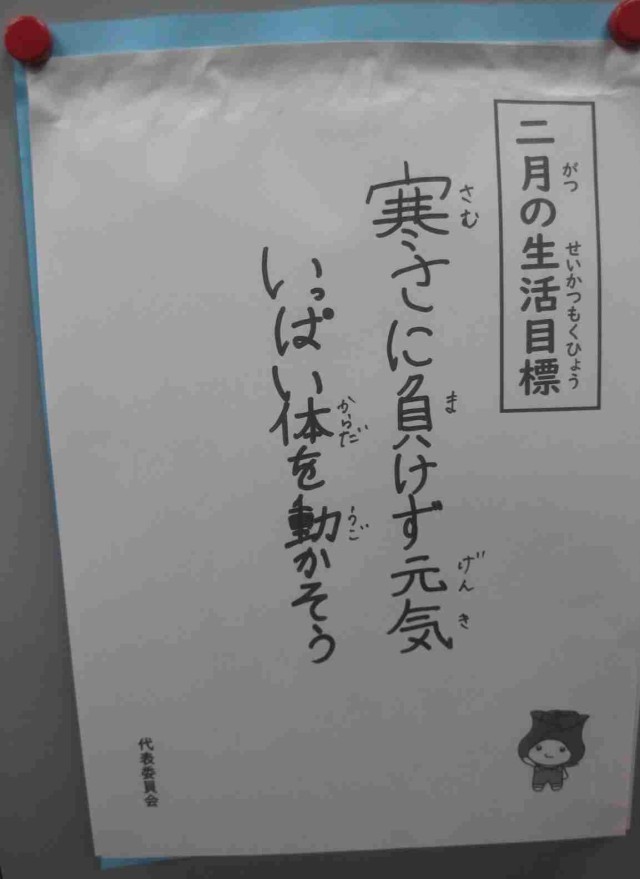 二月の生活目標
がつ せいかつもくひょう
寒さに負けず元気
さむ ま げん き
いっぱい体を動かそう
からだ うご
代表委員会